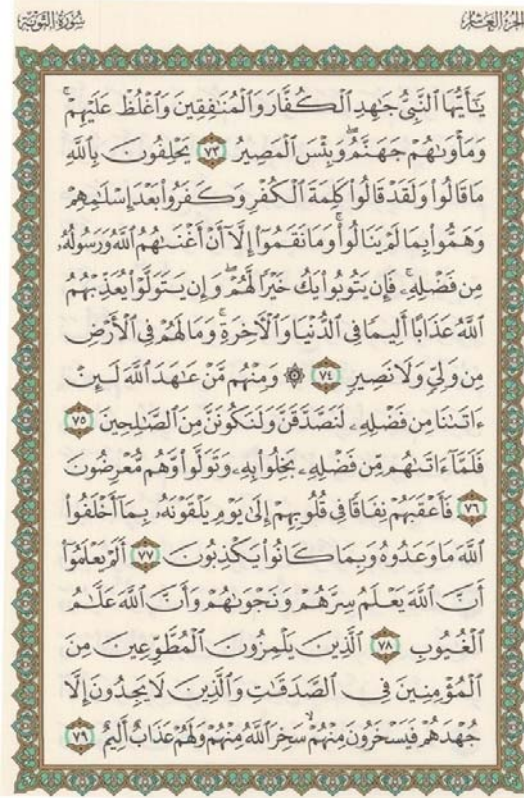 سُورَةُ التَّوْبَةِ
الجُزْءُ العَاشِرُ
يَٰٓأَيُّهَا ٱلنَّبِيُّ جَٰهِدِ ٱلْكُفَّارَ وَٱلْمُنَٰفِقِينَ وَٱغْلُظْ عَلَيْهِمْ ۚ
وَمَأْوَىٰهُمْ جَهَنَّمُ ۖ وَبِئْسَ ٱلْمَصِيرُ ٧٣ يَحْلِفُونَ بِٱللَّهِ
مَا قَالُوا۟ وَلَقَدْ قَالُوا۟ كَلِمَةَ ٱلْكُفْرِ وَكَفَرُوا۟ بَعْدَ إِسْلَٰمِهِمْ
وَهَمُّوا۟ بِمَا لَمْ يَنَالُوا۟ ۚ وَمَا نَقَمُوٓا۟ إِلَّآ أَنْ أَغْنَىٰهُمُ ٱللَّهُ وَرَسُولُهُۥ
مِن فَضْلِهِۦ ۚ فَإِن يَتُوبُوا۟ يَكُ خَيْرًا لَّهُمْ ۖ وَإِن يَتَوَلَّوْا۟ يُعَذِّبْهُمُ
ٱللَّهُ عَذَابًا أَلِيمًا فِى ٱلدُّنْيَا وَٱلْءَاخِرَةِ ۚ وَمَا لَهُمْ فِى ٱلْأَرْضِ
مِن وَلِىٍّ وَلَا نَصِيرٍ ٧٤ ۞ وَمِنْهُم مَّنْ عَٰهَدَ ٱللَّهَ لَئِنْ
ءَاتَىٰنَا مِن فَضْلِهِۦ لَنَصَّدَّقَنَّ وَلَنَكُونَنَّ مِنَ ٱلصَّٰلِحِينَ ٧٥
فَلَمَّآ ءَاتَىٰهُم مِّن فَضْلِهِۦ بَخِلُوا۟ بِهِۦ وَتَوَلَّوا۟ وَّهُم مُّعْرِضُونَ
٧٦ فَأَعْقَبَهُمْ نِفَاقًا فِى قُلُوبِهِمْ إِلَىٰ يَوْمِ يَلْقَوْنَهُۥ بِمَآ أَخْلَفُوا۟
ٱللَّهَ مَا وَعَدُوهُ وَبِمَا كَانُوا۟ يَكْذِبُونَ ٧٧ أَلَمْ يَعْلَمُوٓا۟
أَنَّ ٱللَّهَ يَعْلَمُ سِرَّهُمْ وَنَجْوَىٰهُمْ وَأَنَّ ٱللَّهَ عَلَّٰمُ
ٱلْغُيُوبِ ٧٨ ٱلَّذِينَ يَلْمِزُونَ ٱلْمُطَّوِّعِينَ مِنَ
ٱلْمُؤْمِنِينَ فِى ٱلصَّدَقَٰتِ وَٱلَّذِينَ لَا يَجِدُونَ إِلَّا
جُهْدَهُمْ فَيَسْخَرُونَ مِنْهُمْ ۙ سَخِرَ ٱللَّهُ مِنْهُمْ وَلَهُمْ عَذَابٌ أَلِيمٌ ٧٩